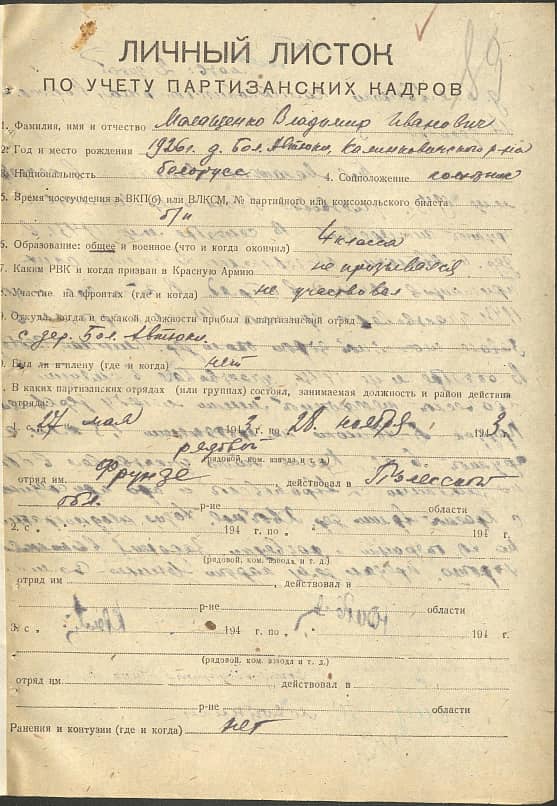 ЛИЧНЫЙ ЛИСТОК
ПО УЧЕТУ ПАРТИЗАНСКИХ КАДРОВ
1. Фамилия, имя и отчество Владимир Иванович
2. Год и место рождения 1926 г. д. Бол. Автюки, Калинковичского р-на
3. Национальность белорусс 4. Соцположение колхозник
5. Время поступления в ВКП(б) или ВЛКСМ, № партийного или комсомольского билета
б/п
6. Образование: общее и военное (что и когда окончил) 4 класса
7. Каким РВК и когда призван в Красную Армию не призывался
8. Участие на фронтах (где и когда) не участвовал
9. Откуда, когда и с какой должности прибыл в партизанский отряд
с дер. Бол. Автюки.
0. Был ли в плену (где и когда) нет
. В каких партизанских отрядах (или группах) состоял, занимаемая должность и район действия
отряда:
1. с 27 мая 1943 г. по 28 ноября 1943 г.
рядовой
(рядовой, ком. взвода и т. д.)
отряд им. Фрунзе, действовал в Полесской
обл. р-не области
2. с 194 г. по 194 г.
(рядовой, ком. взвода и т. д.)
отряд им , действовал в
р-не области
3. с 194 г. по 194 г.
(рядовой, ком. взвода и т. д.)
отряд им , действовал в
р-не области
Ранения и контузии (где и когда) нет